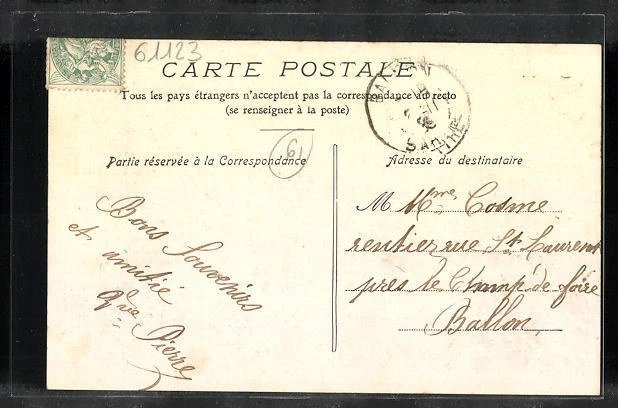 61123
CARTE POSTALE
Tous les pays étrangers n'acceptent pas la correspondance au recto
(se renseigner à la poste)
61
Partie réservée à la Correspondance
Bons Souvenirs
et amitié
Pierre
BALLON
SARTHE
Adresse du destinataire
M Mme Cosme
rentier rue St Laurent
près le Champ de foire
Ballon